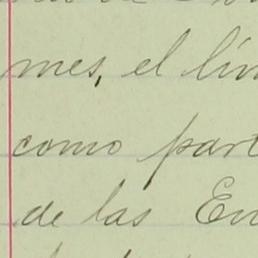 mes, el lím
como part
de las En